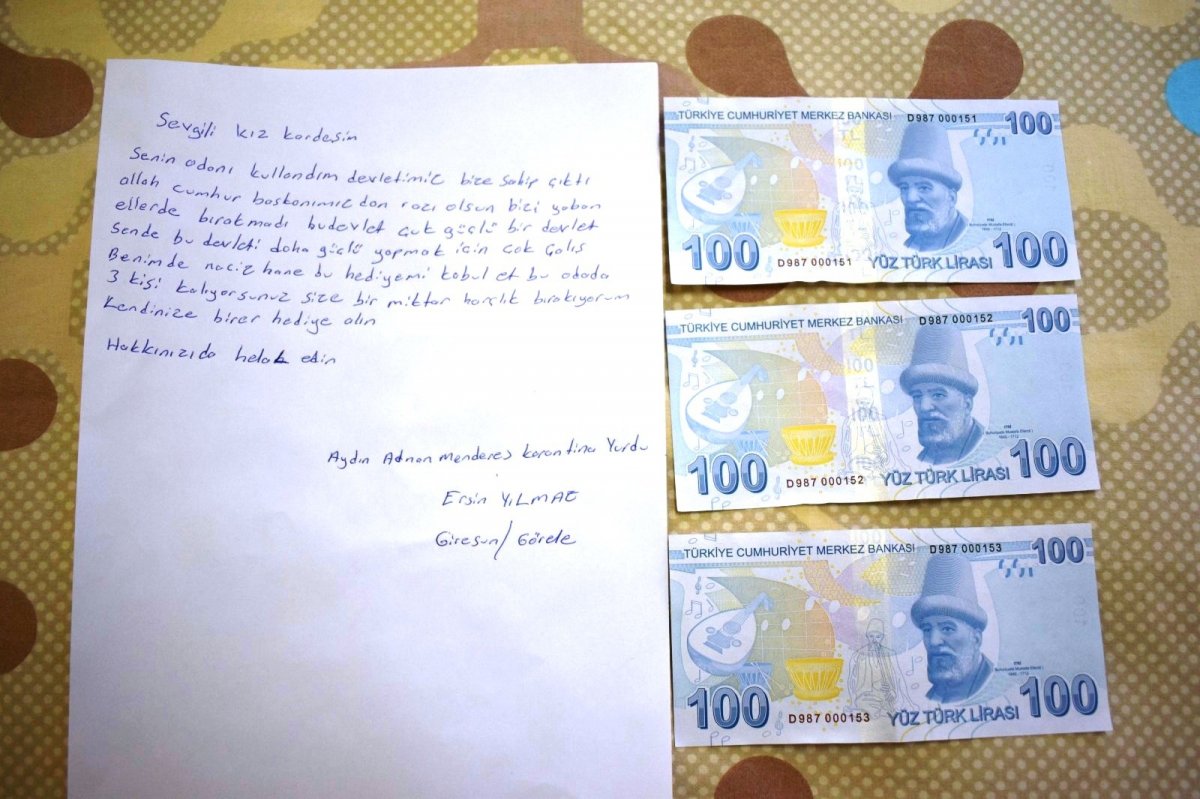 Sevgili kız kardeşin
Senin odanı kullandım devletimiz bize sahip çıktı
allah cumhur başkanımız dan razı olsun bizi yaban
ellerde bırakmadı budevlet çok güçlü bir devlet
sende bu devleti daha güçlü yapmak için çok çalış
Benimde naciz hane bu hediyemi kabul et bu odada
3 kişi kalıyorsunuz size bir miktar harçlık bırakıyorum
kendinize birer hediye alın
Hakkınızıda helal edin
Aydın Adnan Menderes karantina Yurdu
Ersin YILMAZ
Giresun/Görele
TÜRKİYE CUMHURİYET MERKEZ BANKASI D987 000151 100
100 D987 000151 YÜZ TÜRK LİRASI 100
TÜRKİYE CUMHURİYET MERKEZ BANKASI D987 000152 100
100 D987 000152 YÜZ TÜRK LİRASI 100
TÜRKİYE CUMHURİYET MERKEZ BANKASI D987 000153 100
100 D987 000153 YÜZ TÜRK LİRASI 100